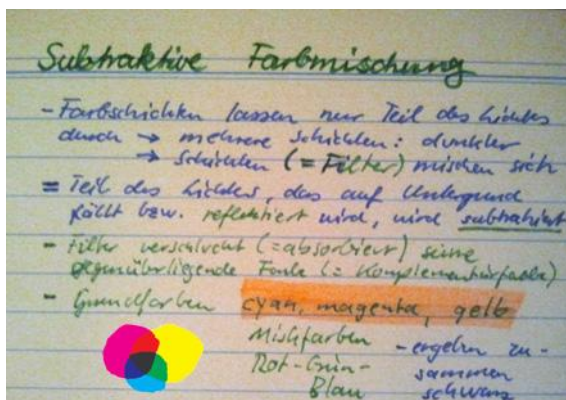 Subtraktive Farbmischung
- Farbschichten lassen nur Teil des Lichtes
durch → mehrere Schichten: dunkler
→ Schichten (= Filter) mischen sich
= Teil des Lichtes, das auf Untergrund
fällt bzw. reflektiert wird, wird subtrahiert
- Filter verschluckt (=absorbiert) seine
gegenüberliegende Farbe (= Komplementärfarbe)
- Grundfarben cyan, magenta, gelb
Mischfarben - ergeben zu-
Rot-Grün- sammen
Blau schwarz